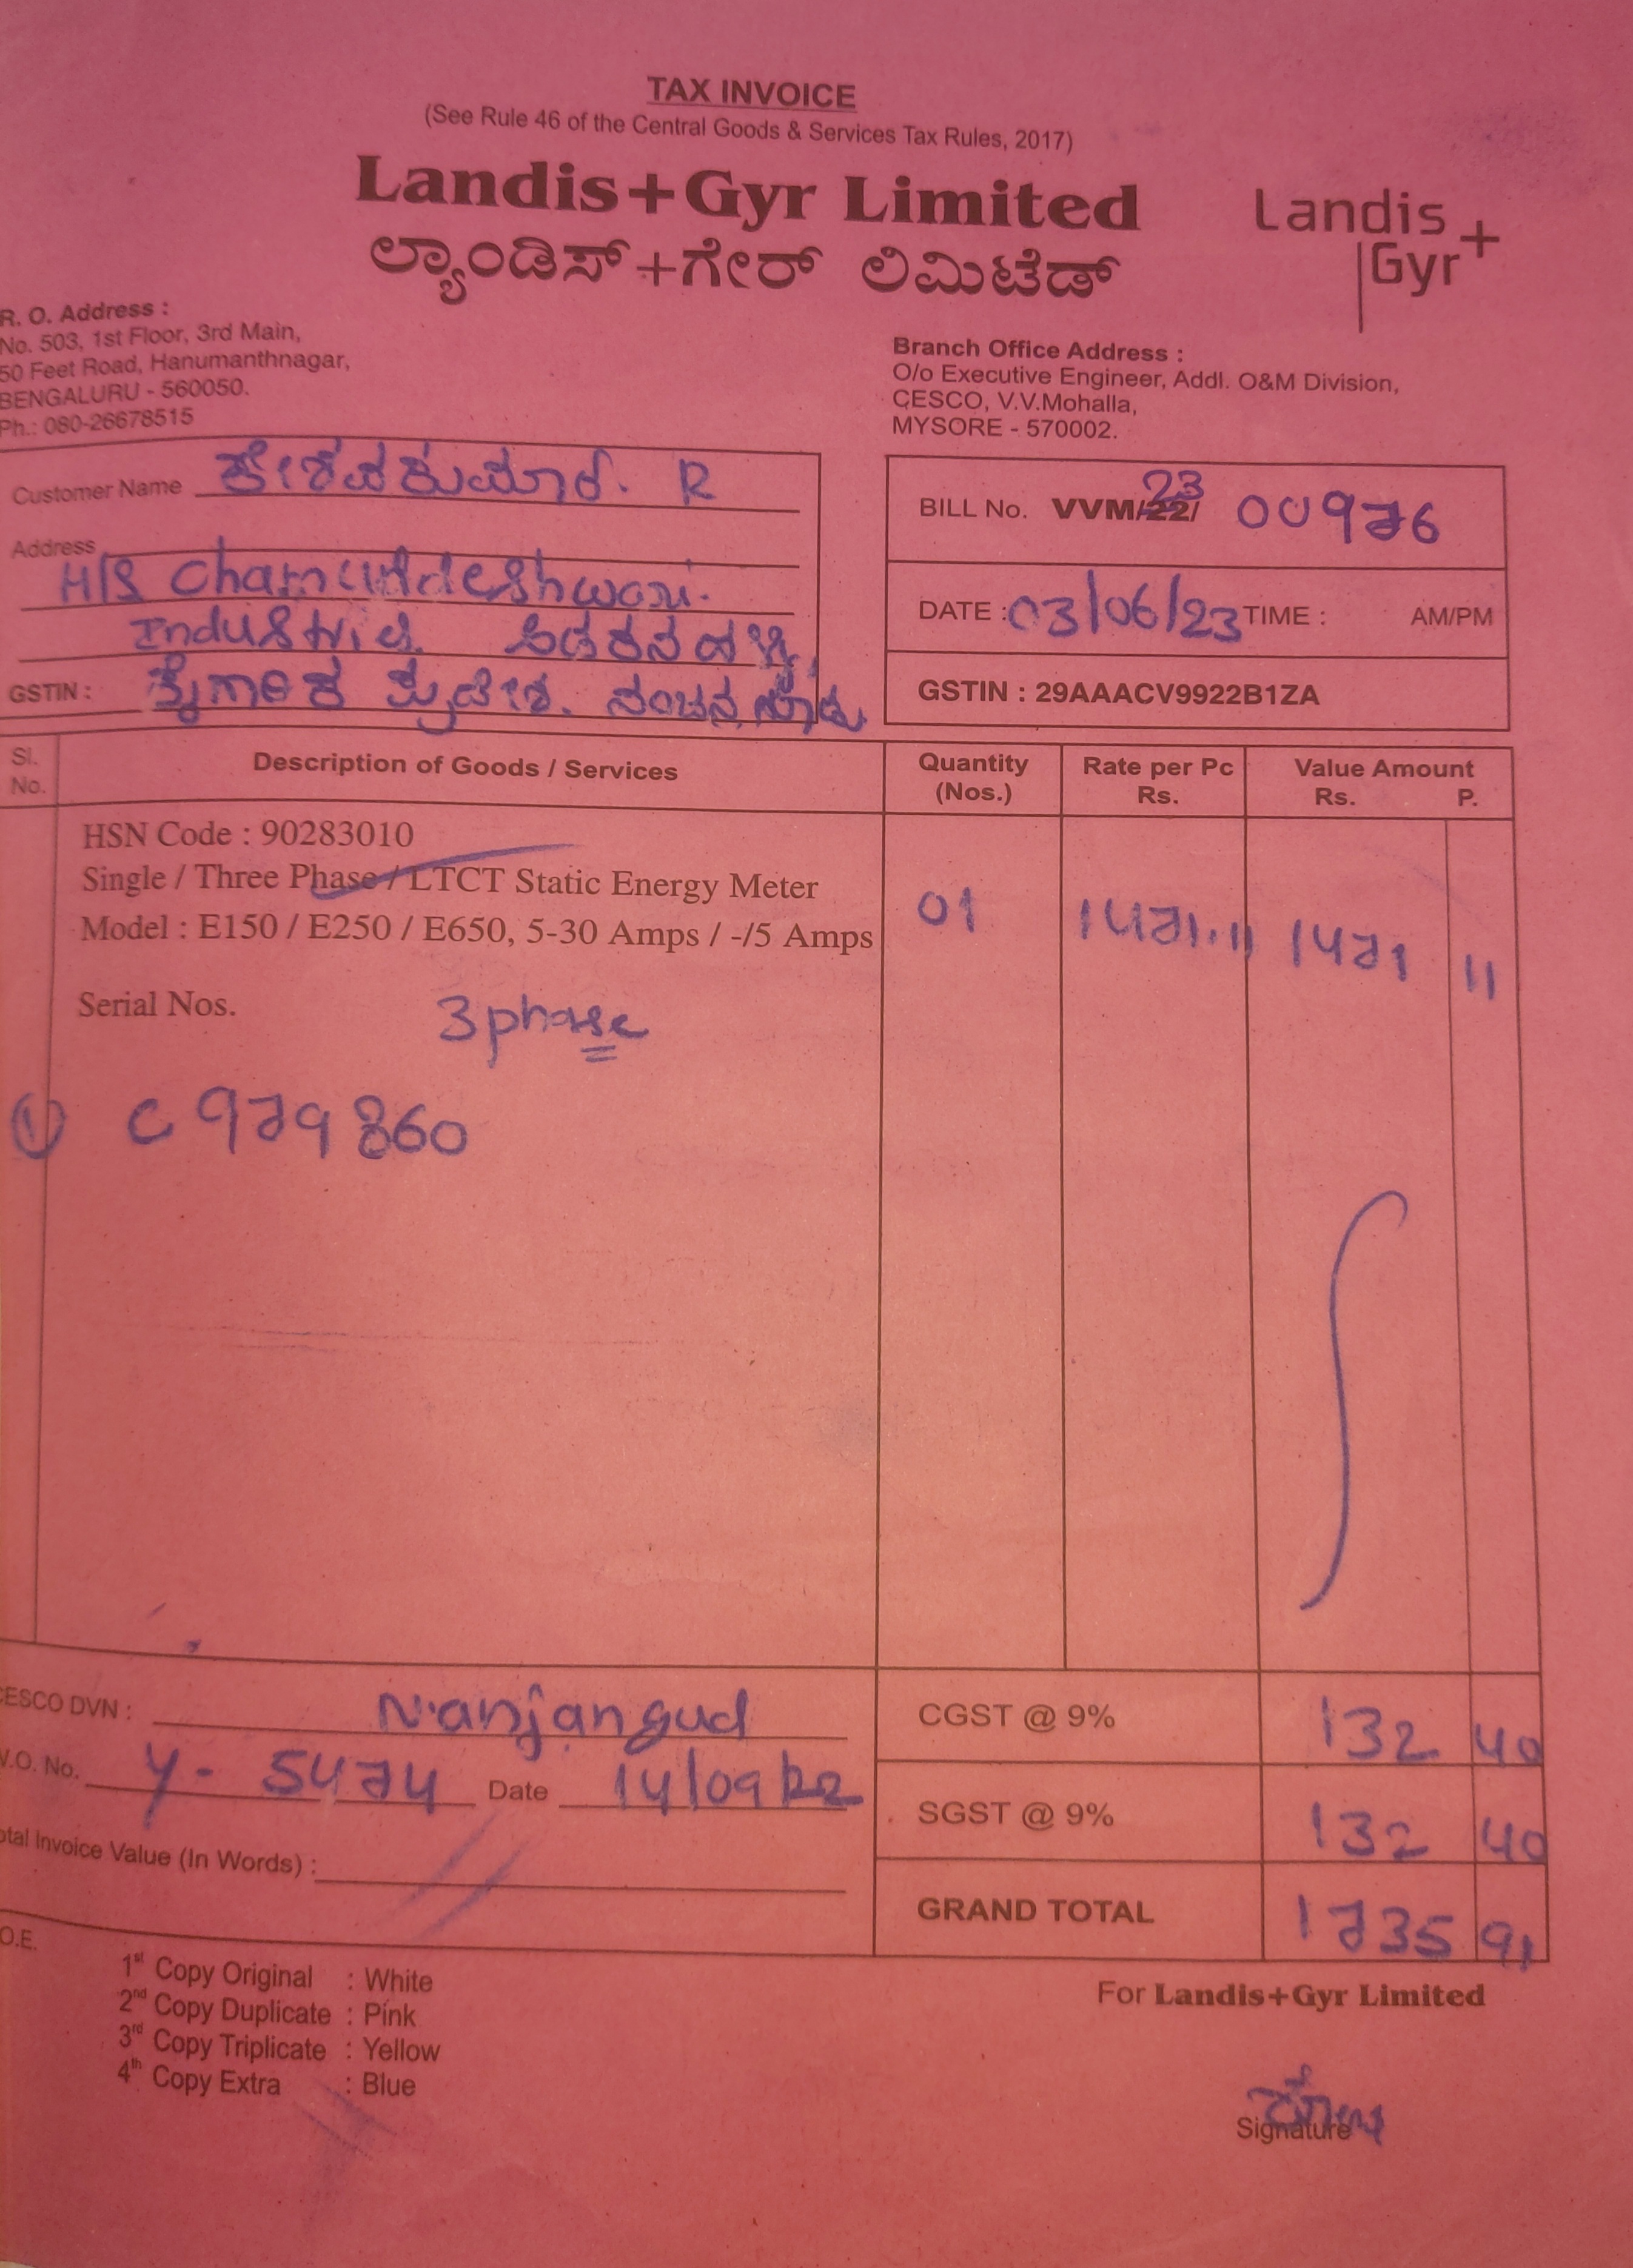 TAX INVOICE
(See Rule 46 of the Central Goods & Services Tax Rules, 2017)
Landis+Gyr Limited
ಲ್ಯಾಂಡಿಸ್+ಗೇರ್ ಲಿಮಿಟೆಡ್
Landis
Gyr+
R. O. Address :
No. 503, 1st Floor, 3rd Main,
50 Feet Road, Hanumanthnagar,
BENGALURU - 560050.
Ph.: 080-26678515
Branch Office Address :
O/o Executive Engineer, Addl. O&M Division,
CESCO, V.V.Mohalla,
MYSORE - 570002.
Customer Name ಕೇಶವಕುಮಾರ. R
Address
M/S Chamundeshwari.
Industries
GSTIN : ಕೈಗಾರಿಕ ಪ್ರದೇಶ. ನಂಜನಗೂಡು
BILL No. VVM/22/ 23 00976
DATE : 03/06/23 TIME : AM/PM
GSTIN : 29AAACV9922B1ZA
Sl. No. Description of Goods / Services Quantity (Nos.) Rate per Pc Rs. Value Amount Rs. P.
HSN Code : 90283010
Single / Three Phase / LTCT Static Energy Meter
Model : E150 / E250 / E650, 5-30 Amps / -/5 Amps 01 1471.11 1471 11
Serial Nos. 3 phase
1 C979860
CESCO DVN : Nanjangud
W.O. No. Y- 5474 Date 14/09/22
Total Invoice Value (In Words) :
CGST @ 9% 132 40
SGST @ 9% 132 40
GRAND TOTAL 1735 91
O.E.
1st Copy Original : White
2nd Copy Duplicate : Pink
3rd Copy Triplicate : Yellow
4th Copy Extra : Blue
For Landis+Gyr Limited
Signature